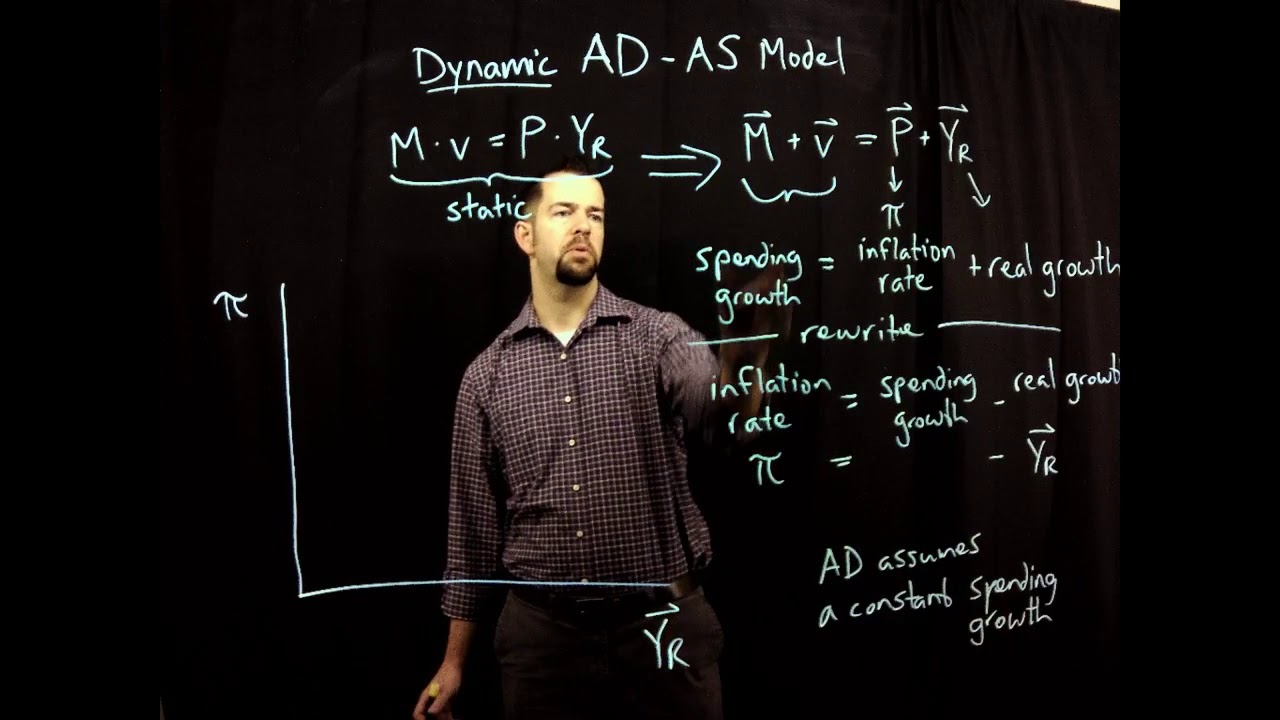 Dynamic AD-AS Model
M · v = P · Y_R ⟹ M⃗ + v⃗ = P⃗ + Y⃗_R
static
↓ ↘
π
spending growth = inflation rate + real growth
rewrite
inflation rate = spending growth - real growth
π = - Y⃗_R
π
Y⃗_R
AD assumes
a constant spending
growth